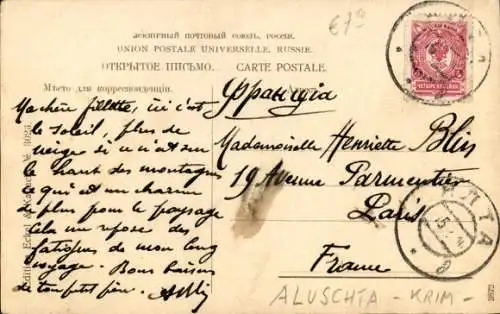 ВСЕМІРНЫЙ ПОЧТОВЫЙ СОЮЗЪ, РОССІЯ.
UNION POSTALE UNIVERSELLE, RUSSIE.
ОТКРЫТОЕ ПИСЬМО. CARTE POSTALE.
Мѣсто для корреспонденціи.
Ma chère fillette, ici c'est
le soleil, plus de
neige si ce n'est sur
le haut des montagnes
ce qui est un charme
de plus pour le paysage
Cela me repose des
fatigues de mon long
voyage. Bons baisers
de ton petit père.
Франція
Mademoiselle Henriette Blin
19 Avenue Parmentier
Paris
France
ЯЛТА
ALUSCHTA - KRIM -